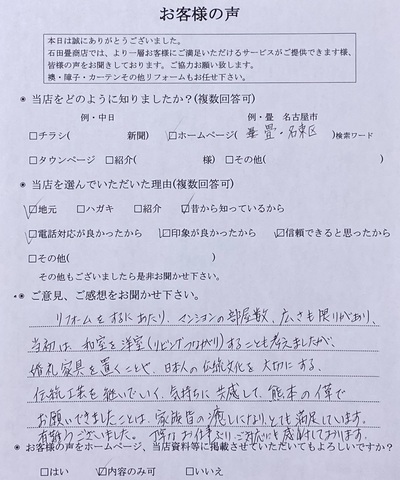 お客様の声
本日は誠にありがとうございました。
石田畳商店では、より一層お客様にご満足いただけるサービスがご提供できます様、
皆様の声をお聞きしております。ご協力お願い致します。
襖・障子・カーテンその他リフォームもお任せ下さい。
◉ 当店をどのように知りましたか？(複数回答可)
例・中日 例・畳 名古屋市
□チラシ( 新聞) ☑ホームページ( 畳・名東区 )検索ワード
□タウンページ □紹介( 様) □その他( )
◉ 当店を選んでいただいた理由(複数回答可)
☑地元 □ハガキ □紹介 ☑昔から知っているから
☑電話対応が良かったから ☑印象が良かったから ☑信頼できると思ったから
□その他( )
その他もございましたら是非お聞かせ下さい。
◉ ご意見、ご感想をお聞かせ下さい。
リフォームをするにあたり、マンションの部屋数、広さも限りがあり、
当初は和室を洋室(リビングつながり)することも考えましたが
婚礼家具を置くことや、日本人の伝統文化を大切にする、
伝統工芸を継いでいく、気持ちに共感して、熊本の草で
お願いできましたことは、家族皆の癒しになり、とても満足しています。
有難うございました。丁寧なお仕事ぶり、ご対応にも感謝しております。
◉ お客様の声をホームページ、当店資料等に掲載させていただいてもよろしいですか？
□はい ☑内容のみ可 □いいえ